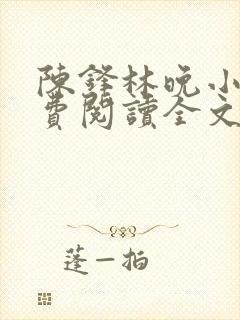 陳鋒林晚小
費閱讀全文
蓬一拍